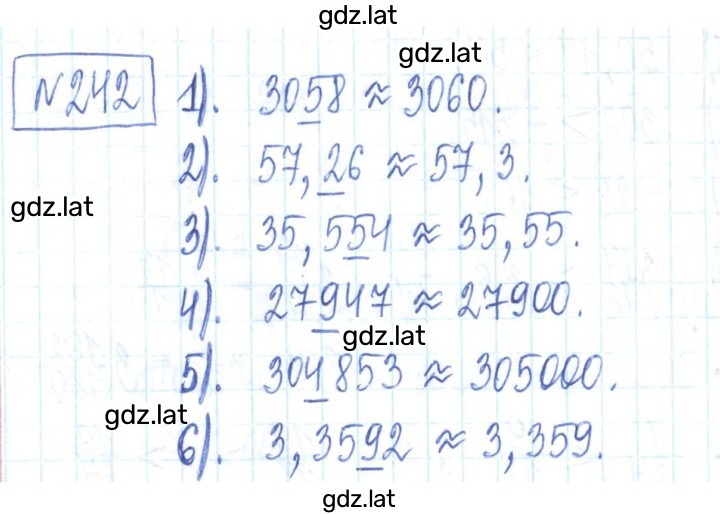 gdz.lat
gdz.lat
№242 1). 3058 ≈ 3060.
2). 57,26 ≈ 57,3.
gdz.lat
3). 35,554 ≈ 35,55.
4). 27947 ≈ 27900.
gdz.lat
5). 304853 ≈ 305000.
gdz.lat
6). 3,3592 ≈ 3,359.
gdz.lat